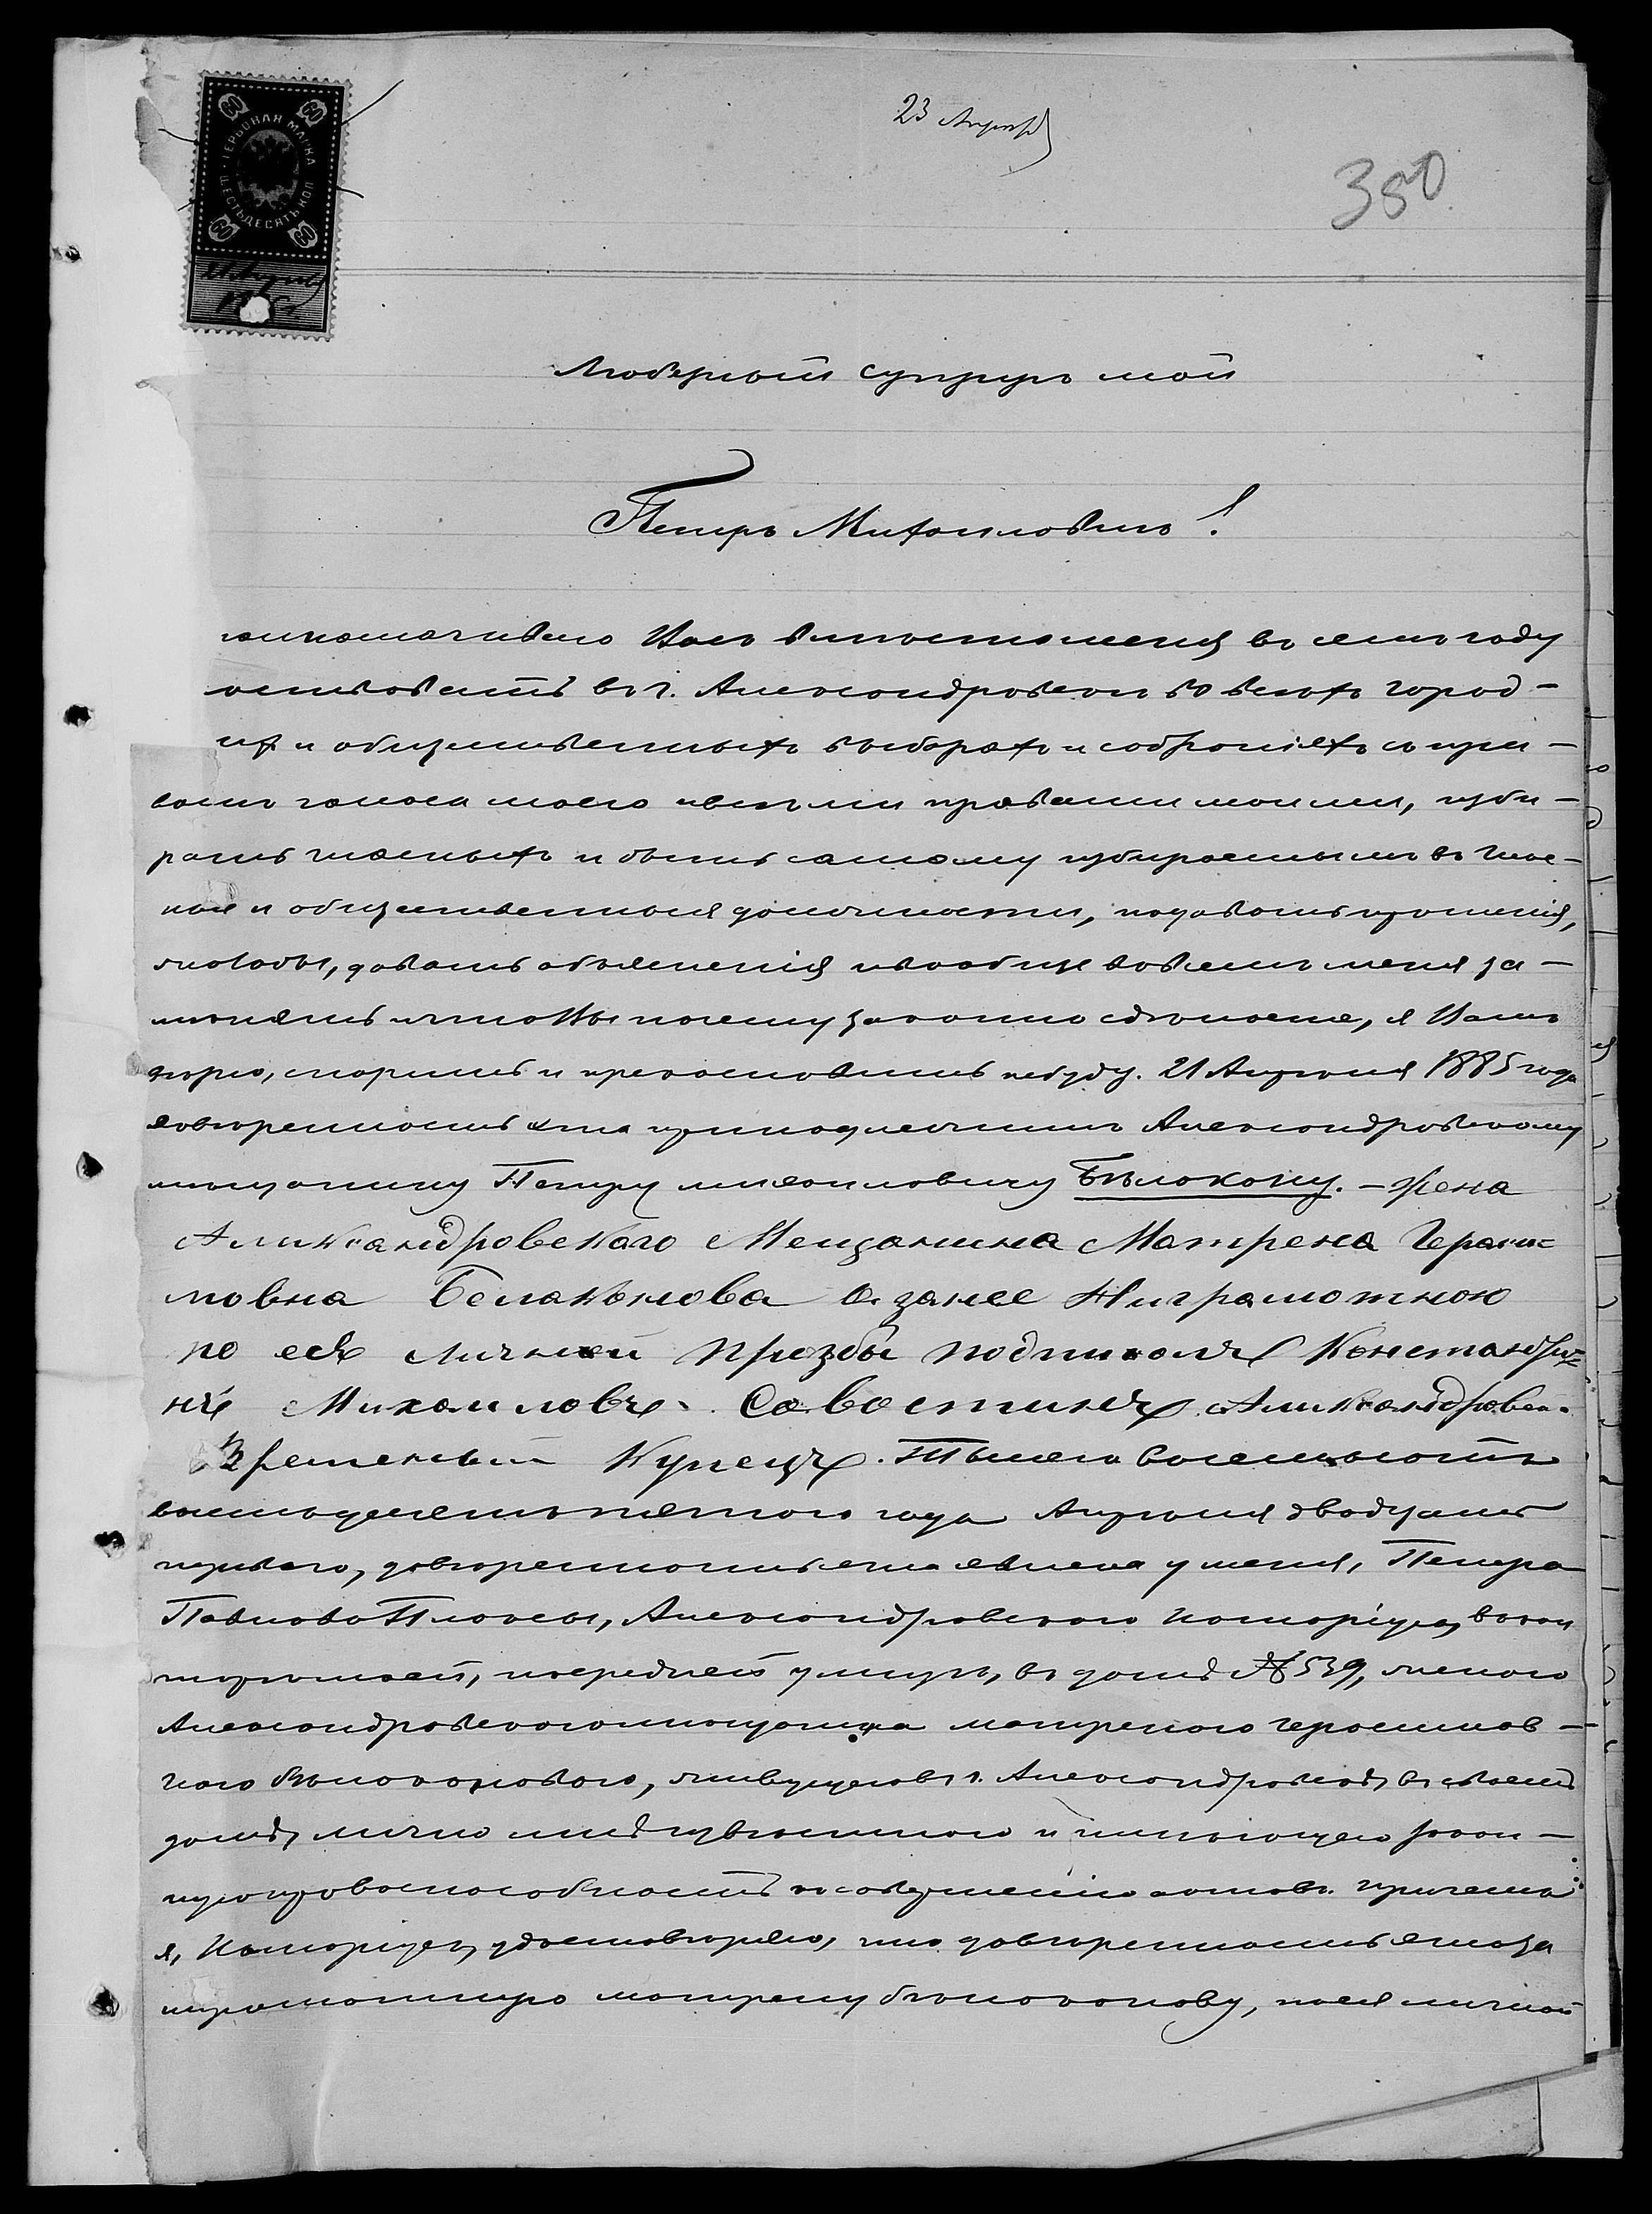 23 Апреля
380
ГЕРБОВАЯ МАРКА
ШЕСТЬДЕСЯТЪ КОП
60 60 60 60
Любезный супругъ мой
Петръ Михаиловичъ!
Васъ вместо меня въ семъ году
въ г. Александровске во всехъ город-
и общественныхъ выборахъ и собраніяхъ съ пра-
вомъ голоса моего и всеми правами моими, изби-
рать гласныхъ и быть самому избираемымъ въ глас-
ные и общественныя должности, подавать прошенія,
жалобы, давать объясненія и вообще во всемъ меня за-
менять и что Вы по сему законно сделаете, я Вамъ
верю, спорить и прекословить не буду. 21 Апреля 1885 года
доверенность эта принадлежитъ Александровскому
мещанину Петру Михаиловичу Бѣлокону. – жена
Аликсандровскаго Мещанина Матрена Гераси=
мовна Белаконова а занее Ниграмотною
по еея личной прозбы подписалъ
Михаиловъ Савостинъ Александровск.
Временый Купецъ. Тысяча восемьсотъ
восемьдесятъ пятаго года Апреля двадцать
перваго, доверенность эта явлена у меня, Петра
Павлова Плохсы, Александровскаго Нотаріуса, въ кон
торе моей, на средней улице, въ доме № 539, женою
Александровскаго мещанина Матреною Герасимов-
ною Белоконовою, живущею въ г. Александровске, въ своемъ
доме, лично мне известною и имеющею закон-
ную правоспособность къ совершенію актовъ. При чемъ
я, Нотаріусъ, удостоверяю, что доверенность эта за
неграмотную Матрену Белоконову, по ея личной